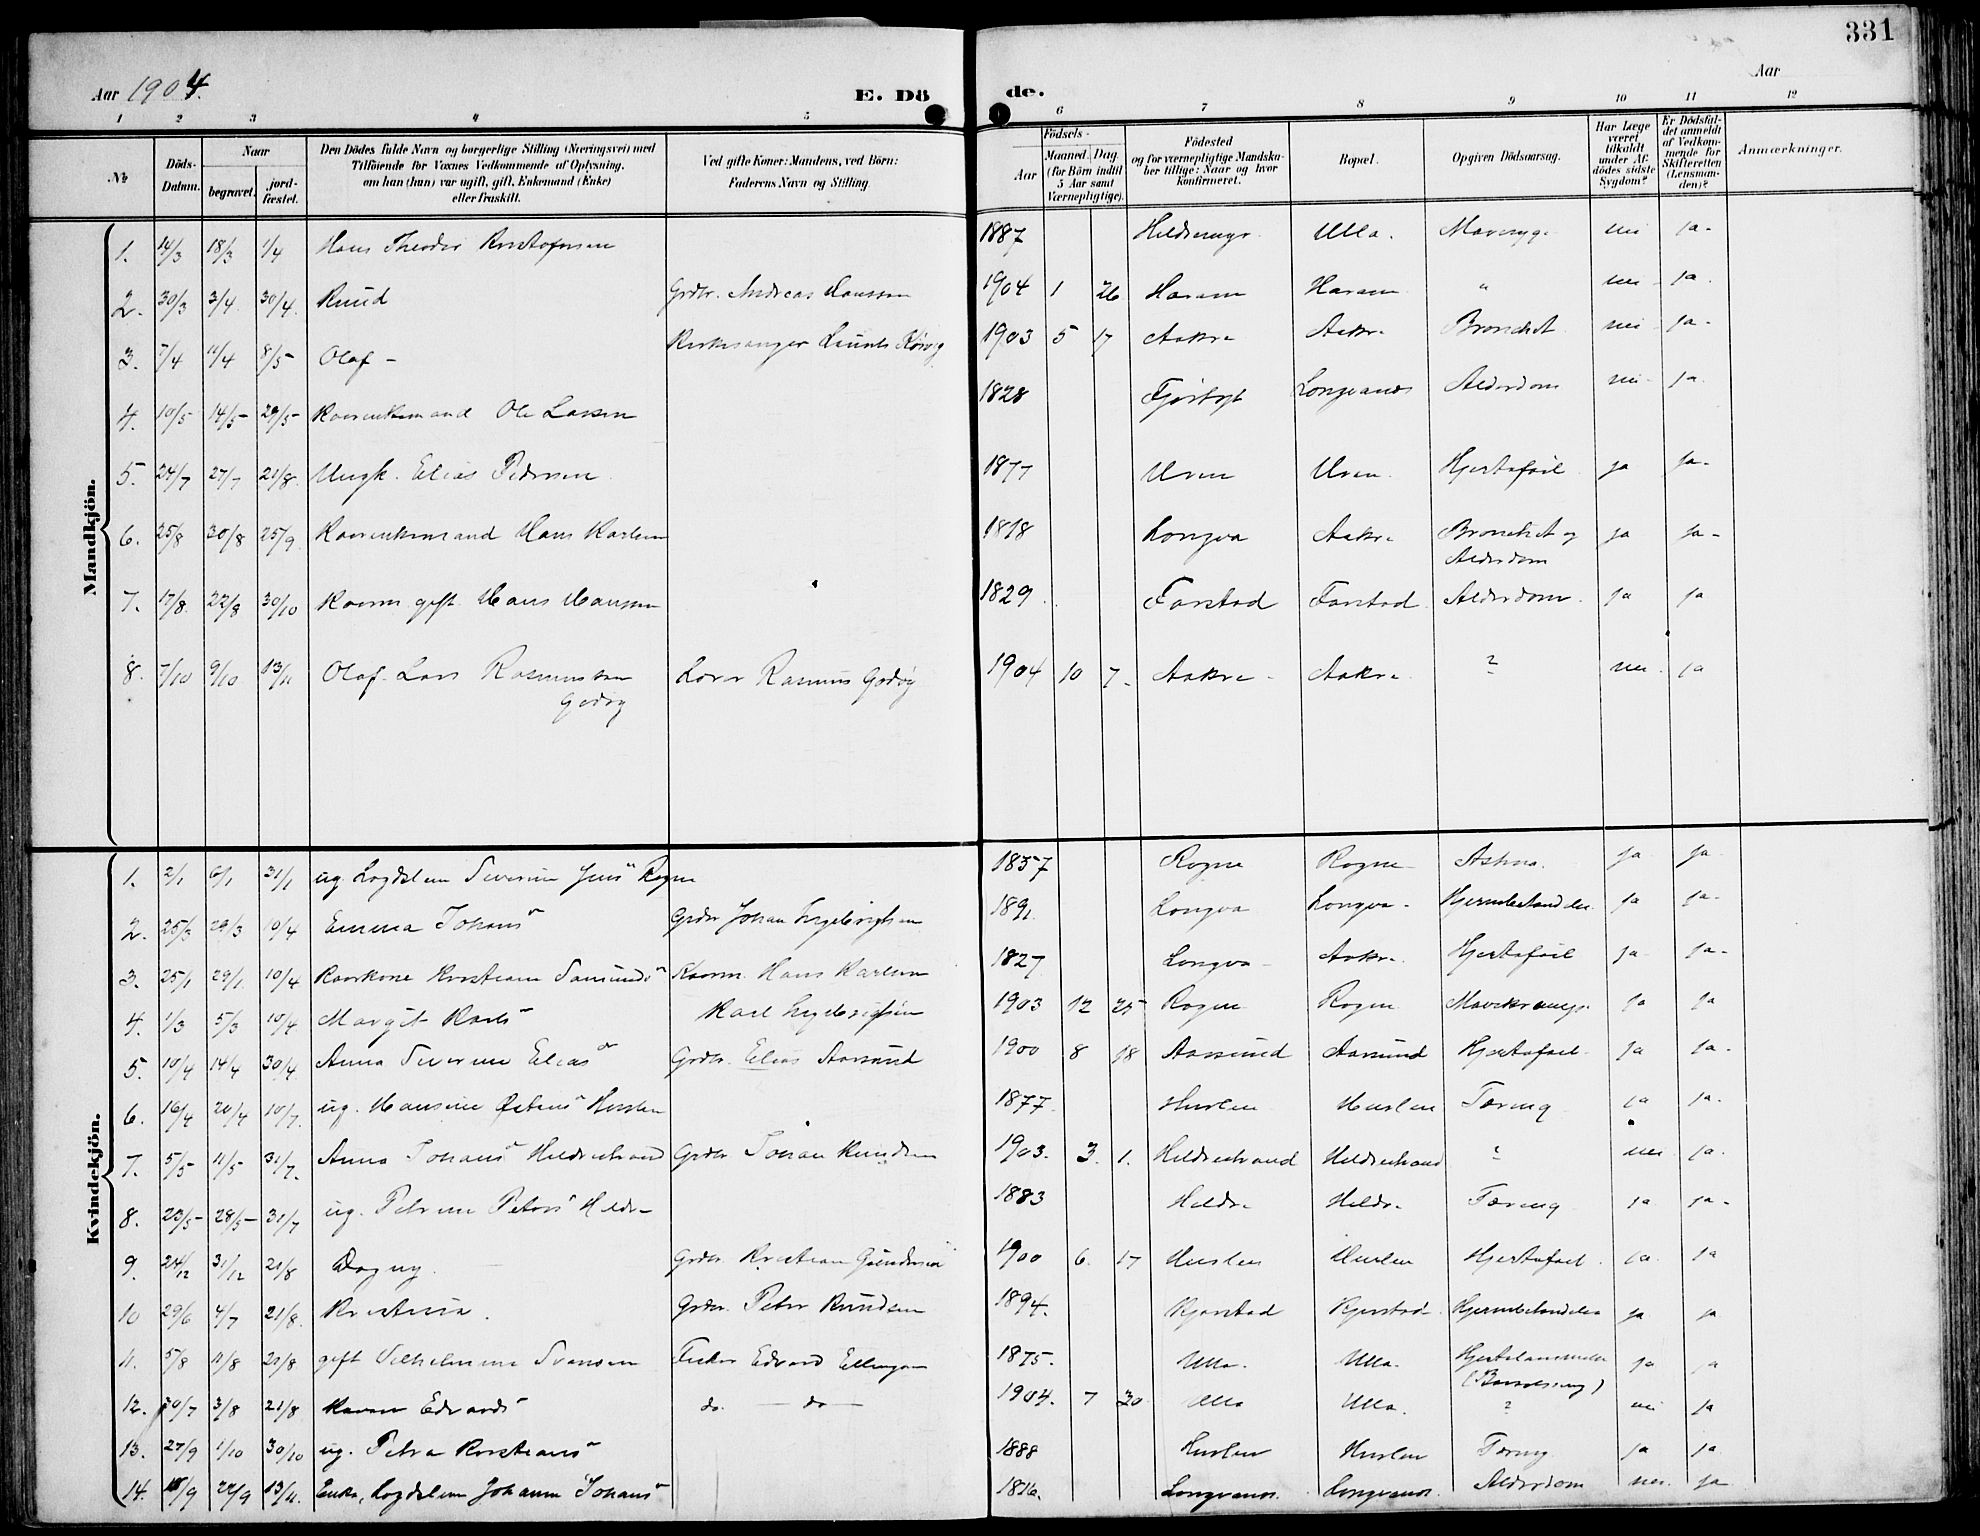 331
Aar 1904.
E. Dö
de.
Aar
1 2 3 4 5 6 7 8 9 10 11 12
No.
Döds-Datum.
Naar
begravet.
jord-fæstet.
Den Dödes fulde Navn og borgerlige Stilling (Næringsvei) med
Tilföiende for Voxnes Vedkommende af Oplysning,
om han (hun) var ugift, gift, Enkemand (Enke)
eller fraskilt.
Ved gifte Koner: Mandens, ved Börn:
Faderens Navn og Stilling.
Födsels-
Aar
Maaned. Dag.
(for Börn indtil
5 Aar samt
Værnepligtige).
Födested
og for værnepligtige Mandska-
ber tillige: Naar og hvor
konfirmeret.
Bopæl.
Opgiven Dödsaarsag.
Har Læge
været
tilkaldt
under Af-
dödes sidste
Sygdom?
Er Dödsfal-
det anmeldt
af Vedkom-
mende for
Skifteretten
(Lensman-
den)?
Anmærkninger.
Mandkjön.
1. 14/3 18/3 1/4 Hans Theodor Kristofersen 1887 Ulla. nei ja-
2. 30/3 3/4 30/4 Knud Grdbr. Andreas Hanssen 1904 1 26 Haram Haram " nei ja.
3. 7/4 11/4 8/5 Olaf - Kirkesanger 1903 5 17 Aakre Aakre Bronchit nei ja-
4. 10/5 14/5 29/5 Ole Larsen 1828 Fjørtoft Longvanes Alderdom nei ja.
5. 24/7 27/7 21/8 Ungk. Elias Pedersen 1877 Uren Uren. Hjertefeil ja ja-
6. 25/8 30/8 25/9 Hans Karlsen 1818 Longva Aakre Bronchit og
Alderdom ja ja-
7. 17/8 22/8 30/10 Kaarm. gift Hans Hansen 1829 Farstad Farstad Alderdom. ja ja
8. 7/10 9/10 13/11 Olaf Lars Rasmussen
Godøy Lærer Rasmus Godøy 1904 10 7 Aakre Aakre ? nei. ja
Kvindekjön.
1. 2/1 6/1 31/1 ug. Logdslem Severine Jens" Rogne 1857 Rogne Rogne Astma. ja ja-
2. 25/3 29/3 10/4 Emma Johans" Grdbr Johan Ingebrigtsen 1891 Longva Longva. ja ja-
3. 25/1 29/1 10/4 Kaarkone Kaarm. Hans Karlsen 1827 Longva Aakre. Hjertefeil ja ja-
4. 1/3 5/3 10/4 Margit Karls" Karl Ingebrigtsen 1903 12 25 Rogne Rogne ja ja
5. 10/4 14/4 30/4 Anna Severine Elias" Grdbr. Elias Aarsund 1900 8 18 Aarsund Aarsund Hjertefeil ja ja-
6. 16/4 20/4 10/7 ug. Hansine 1877. Huslen Huslen Tæring ja ja-
7. 5/5 11/5 31/7 Anna Johans" Hildrestrand Grdbr Johan Knudsen 1903. 3. 1. Hildrestrand Hildrestrand ? nei ja.
8. 23/5 28/5 31/7 ug. Petrine Peters" Hildre 1883 Hildre Hildre Tæring ja ja-
9. 24/12 31/12 21/8 Dagny. Grdbr. Kristian 1900 6. 17 Huslen Huslen Hjertefeil. ja. ja
10 29/6 4/7 21/8 Kristina. Grdbr. Peter Knudsen 1894. Kjerstad Kjerstad ja ja
11. 5/8 11/8 21/8 gift Vilhelmine Svensen Fisker Edvard Ellingsen 1875. Ulla. Ulla. ja ja
12. 30/7 3/8 21/8 Edvards" do. — do — 1904. 7 30 Ulla Ulla. ? nei ja
13. 27/9 1/10 30/10 ug. Petra Kristians" 1888 Huslen Huslen Tæring ja ja
14. 18/9 24/9 13/11. Enke, Logdslem Johanne Johans" 1816. Longvanes. Longvanes. Alderdom nei. ja